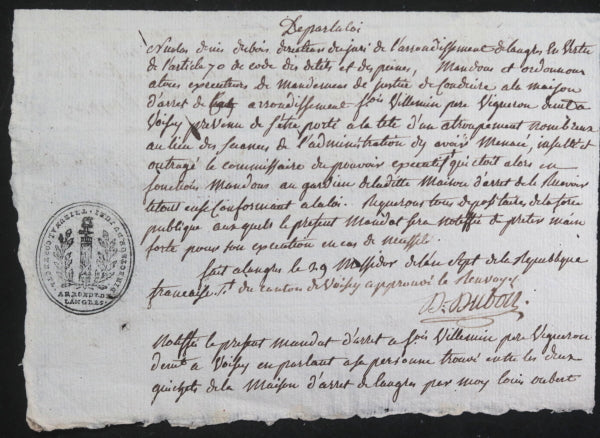 De par la loi
Nicolas denis dubois directeur du juri de l'arrondissement de langres En Vertu
de l'article 70 de code des delits et des peines, Mandons et ordonnons
a tous executeurs de mandemens de justice de Conduire a la maison
d'arret de arrondissement fois Villemin pere Vigneron demt a
Voisey prevenu de s'etre porté a la tete d'un atroupement nombreux
au lieu des seances de l'administration d'y avoir Menacé, insulté et
outragé le commissaire du pouvoir executif qui etoit alors en
fonctions Mandons au gardien de laditte Maison d'arret de le Recevoir
le tout en se Conformant a la loi. Requerons tous depositaires de la force
publique auxquels le present Mandat sera notiffié de preter main
forte pour son execution en cas de
fait a langres le 29 Messidor de l'an Sept de la Republique
francaise. du canton de Voisey approuvé le Renvoy
Ds. Dubois
ARRONDT. DE
LANGRES
Notiffié le present mandat d'arret a fois Villemin pere Vigneron
demt. a Voisey en parlant a sa personne trouvé entre les deux
guichets de la Maison d'arret de langres par moy louis oubert